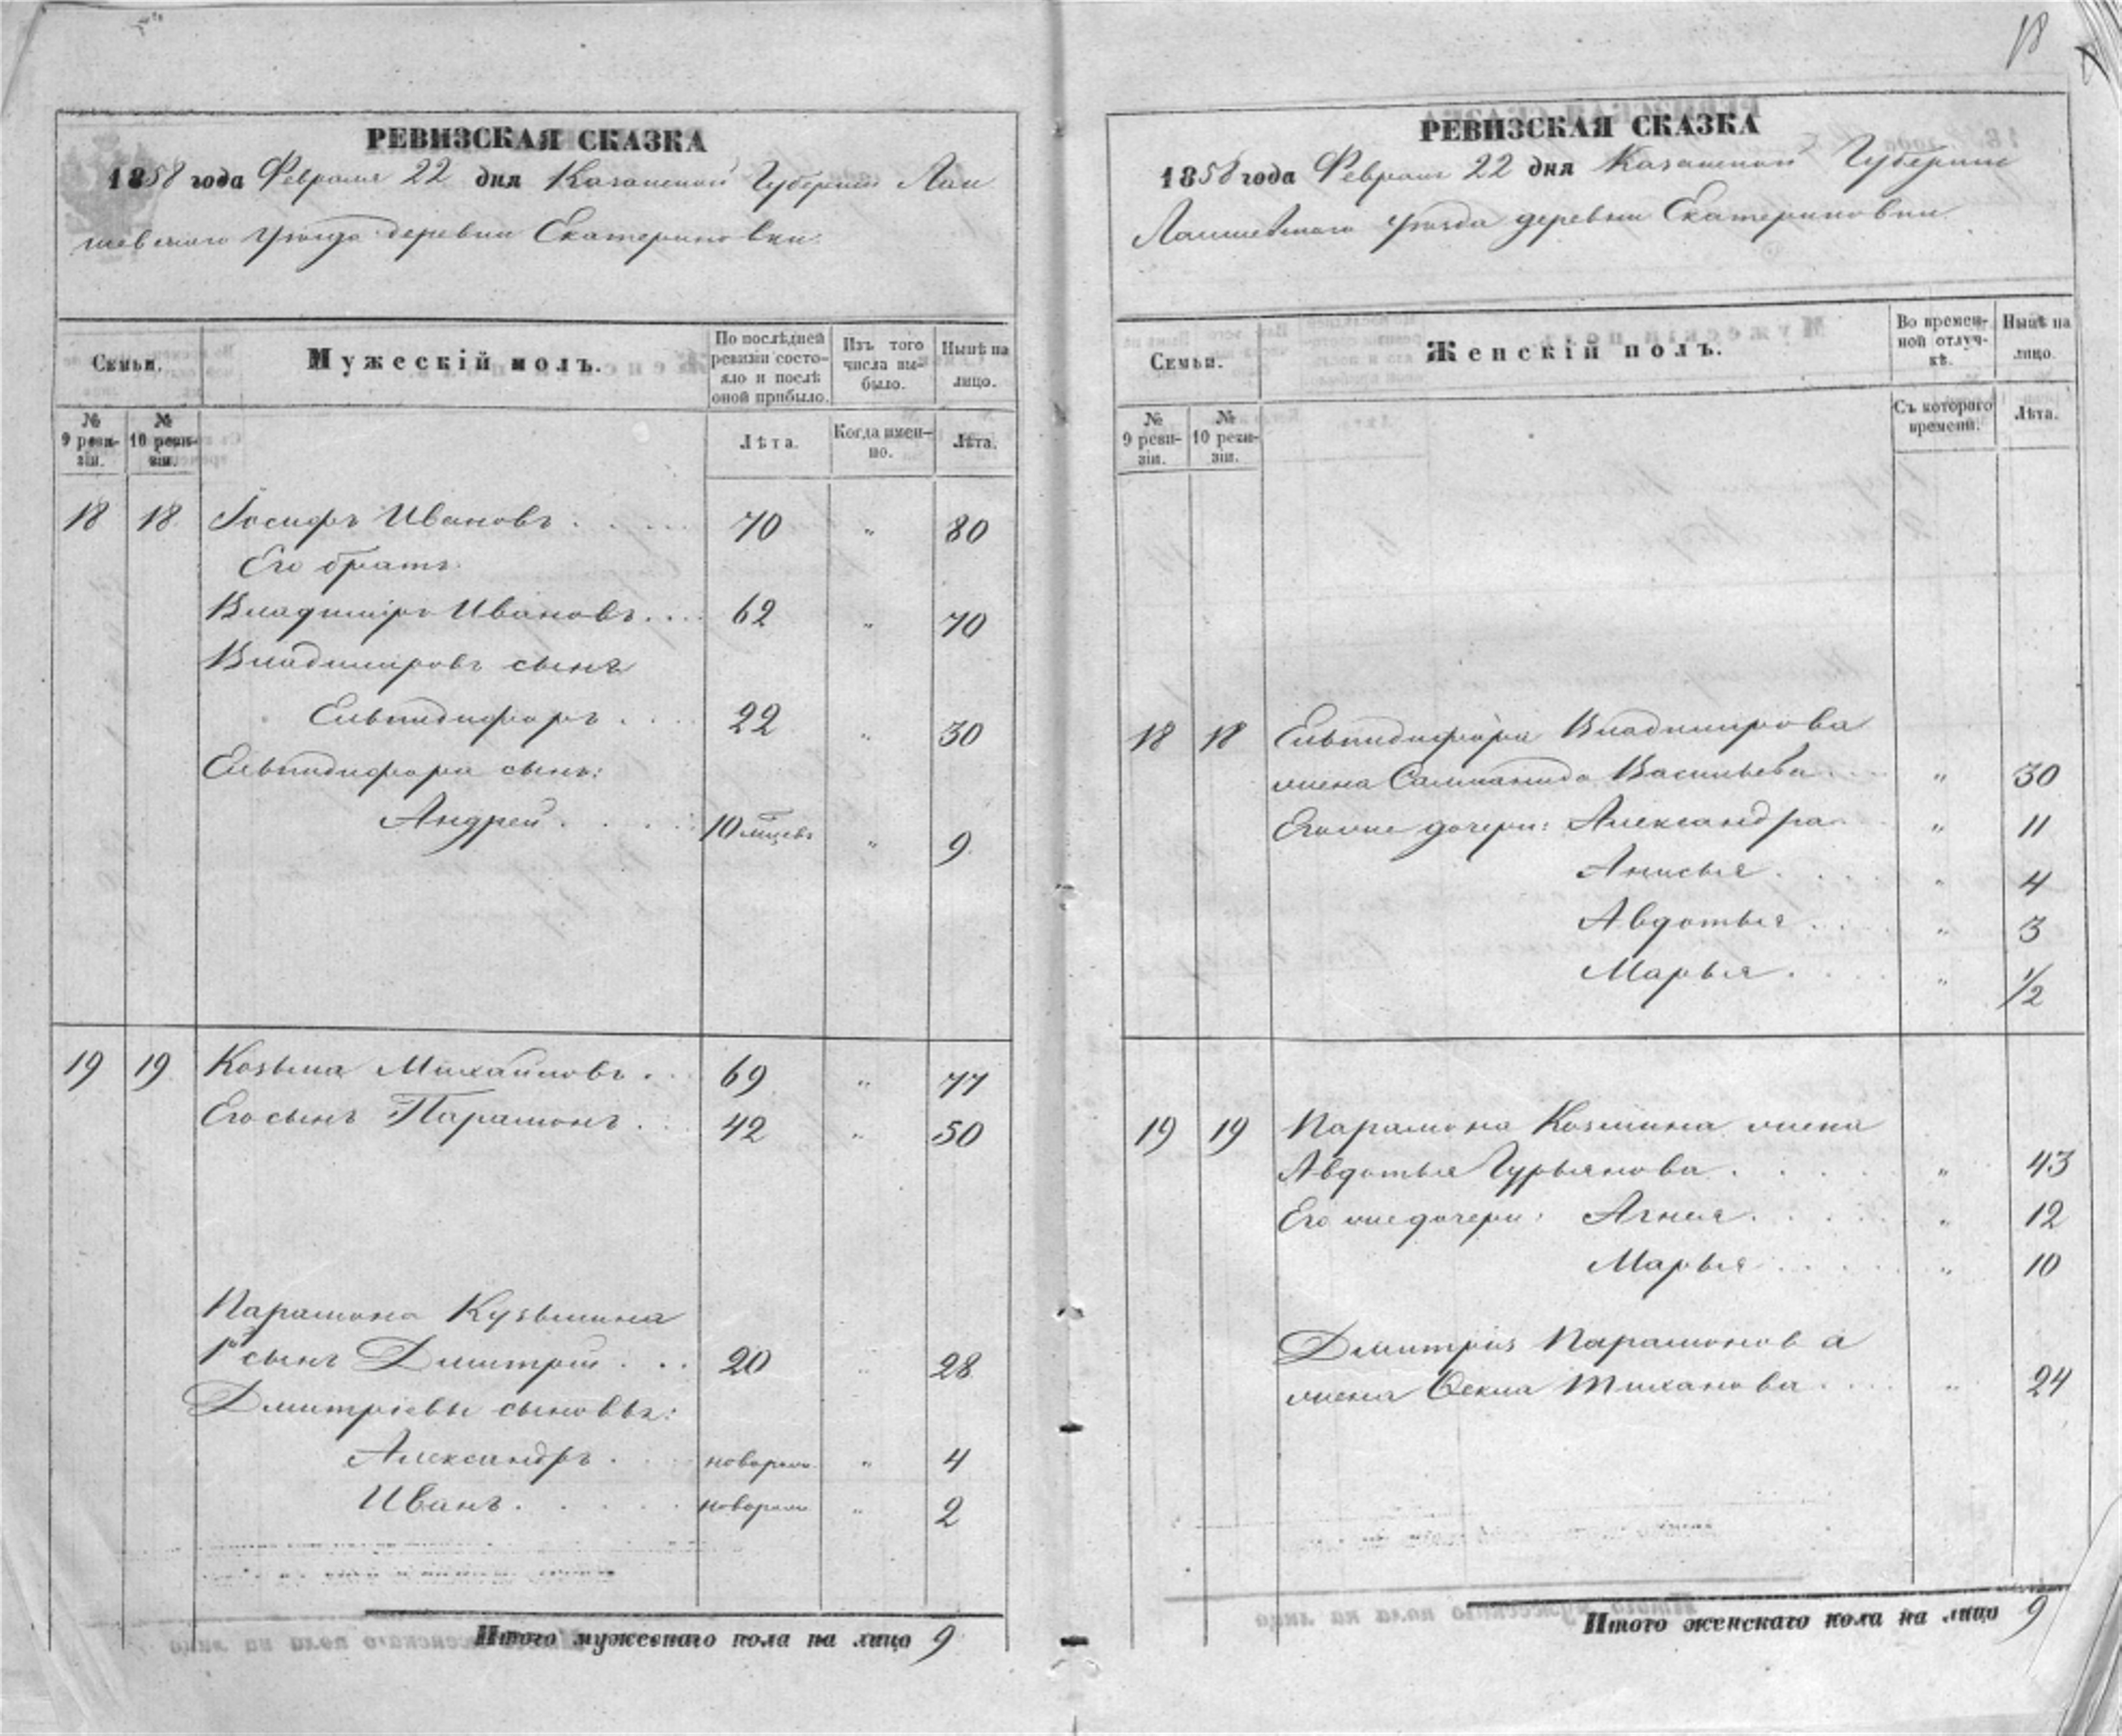 18
РЕВИЗСКАЯ СКАЗКА
1858 года Февраля 22 дня Казанской Губернии Лаи
шевскаго Уѣзда деревни Екатериновки.
Семьи.
Мужескій полъ.
По послѣдней ревизіи состояло и послѣ оной прибыло.
Изъ того числа выбыло.
Нынѣ на лицо.
№ 9 ревизіи.
№ 10 ревизіи.
Лѣта.
Когда именно.
Лѣта.
18 18 Іосифъ Ивановъ . . . . 70 „ 80
Его братъ
Владиміръ Ивановъ . . . 62 „ 70
Владимировъ сынъ
Елпидифоръ . . . 22 „ 30
Елпидифора сынъ:
Андрей . . . . 10 мѣцевъ „ 9
19 19 Козьма Михайловъ . . 69 „ 77
Его сынъ Парамонъ . . . 42 „ 50
Парамона Кузьмина
1й сынъ Дмитрій . . . 20 „ 28
Дмитріевы сыновья:
Александръ . . . новорож. „ 4
Иванъ . . . . . новорож „ 2
Итого мужескаго пола на лицо 9
РЕВИЗСКАЯ СКАЗКА
1858 года Февраля 22 дня Казанской Губерніи
Лаишевскаго Уѣзда деревни Екатериновки.
Семьи.
Женскій полъ.
Во временной отлучкѣ.
Нынѣ на лицо.
№ 9 ревизіи.
№ 10 ревизіи.
Съ котораго времени.
Лѣта.
18 18 Елпидифора Владимирова
жена Саломанида Васильева . . . „ 30
Его же дочери: Александра . . „ 11
Анисья . . . . „ 4
Авдотья . . . . „ 3
Марья . . . . „ 1/2
19 19 Парамона Козмина жена
Авдотья Гурьянова . . . . . „ 43
Его же дочери: Агнея . . . . . „ 12
Марья . . . . . „ 10
Дмитрія Парамонова
жена Ѳекла Тиханова . . . . „ 24
Итого женскаго пола на лицо 9